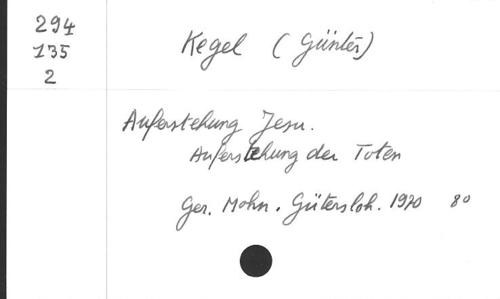 294
135
2
Kegel (Günter)
Auferstehung Jesu.
Auferstehung der Toten
Ger. Mohn. Gütersloh. 1970 8º